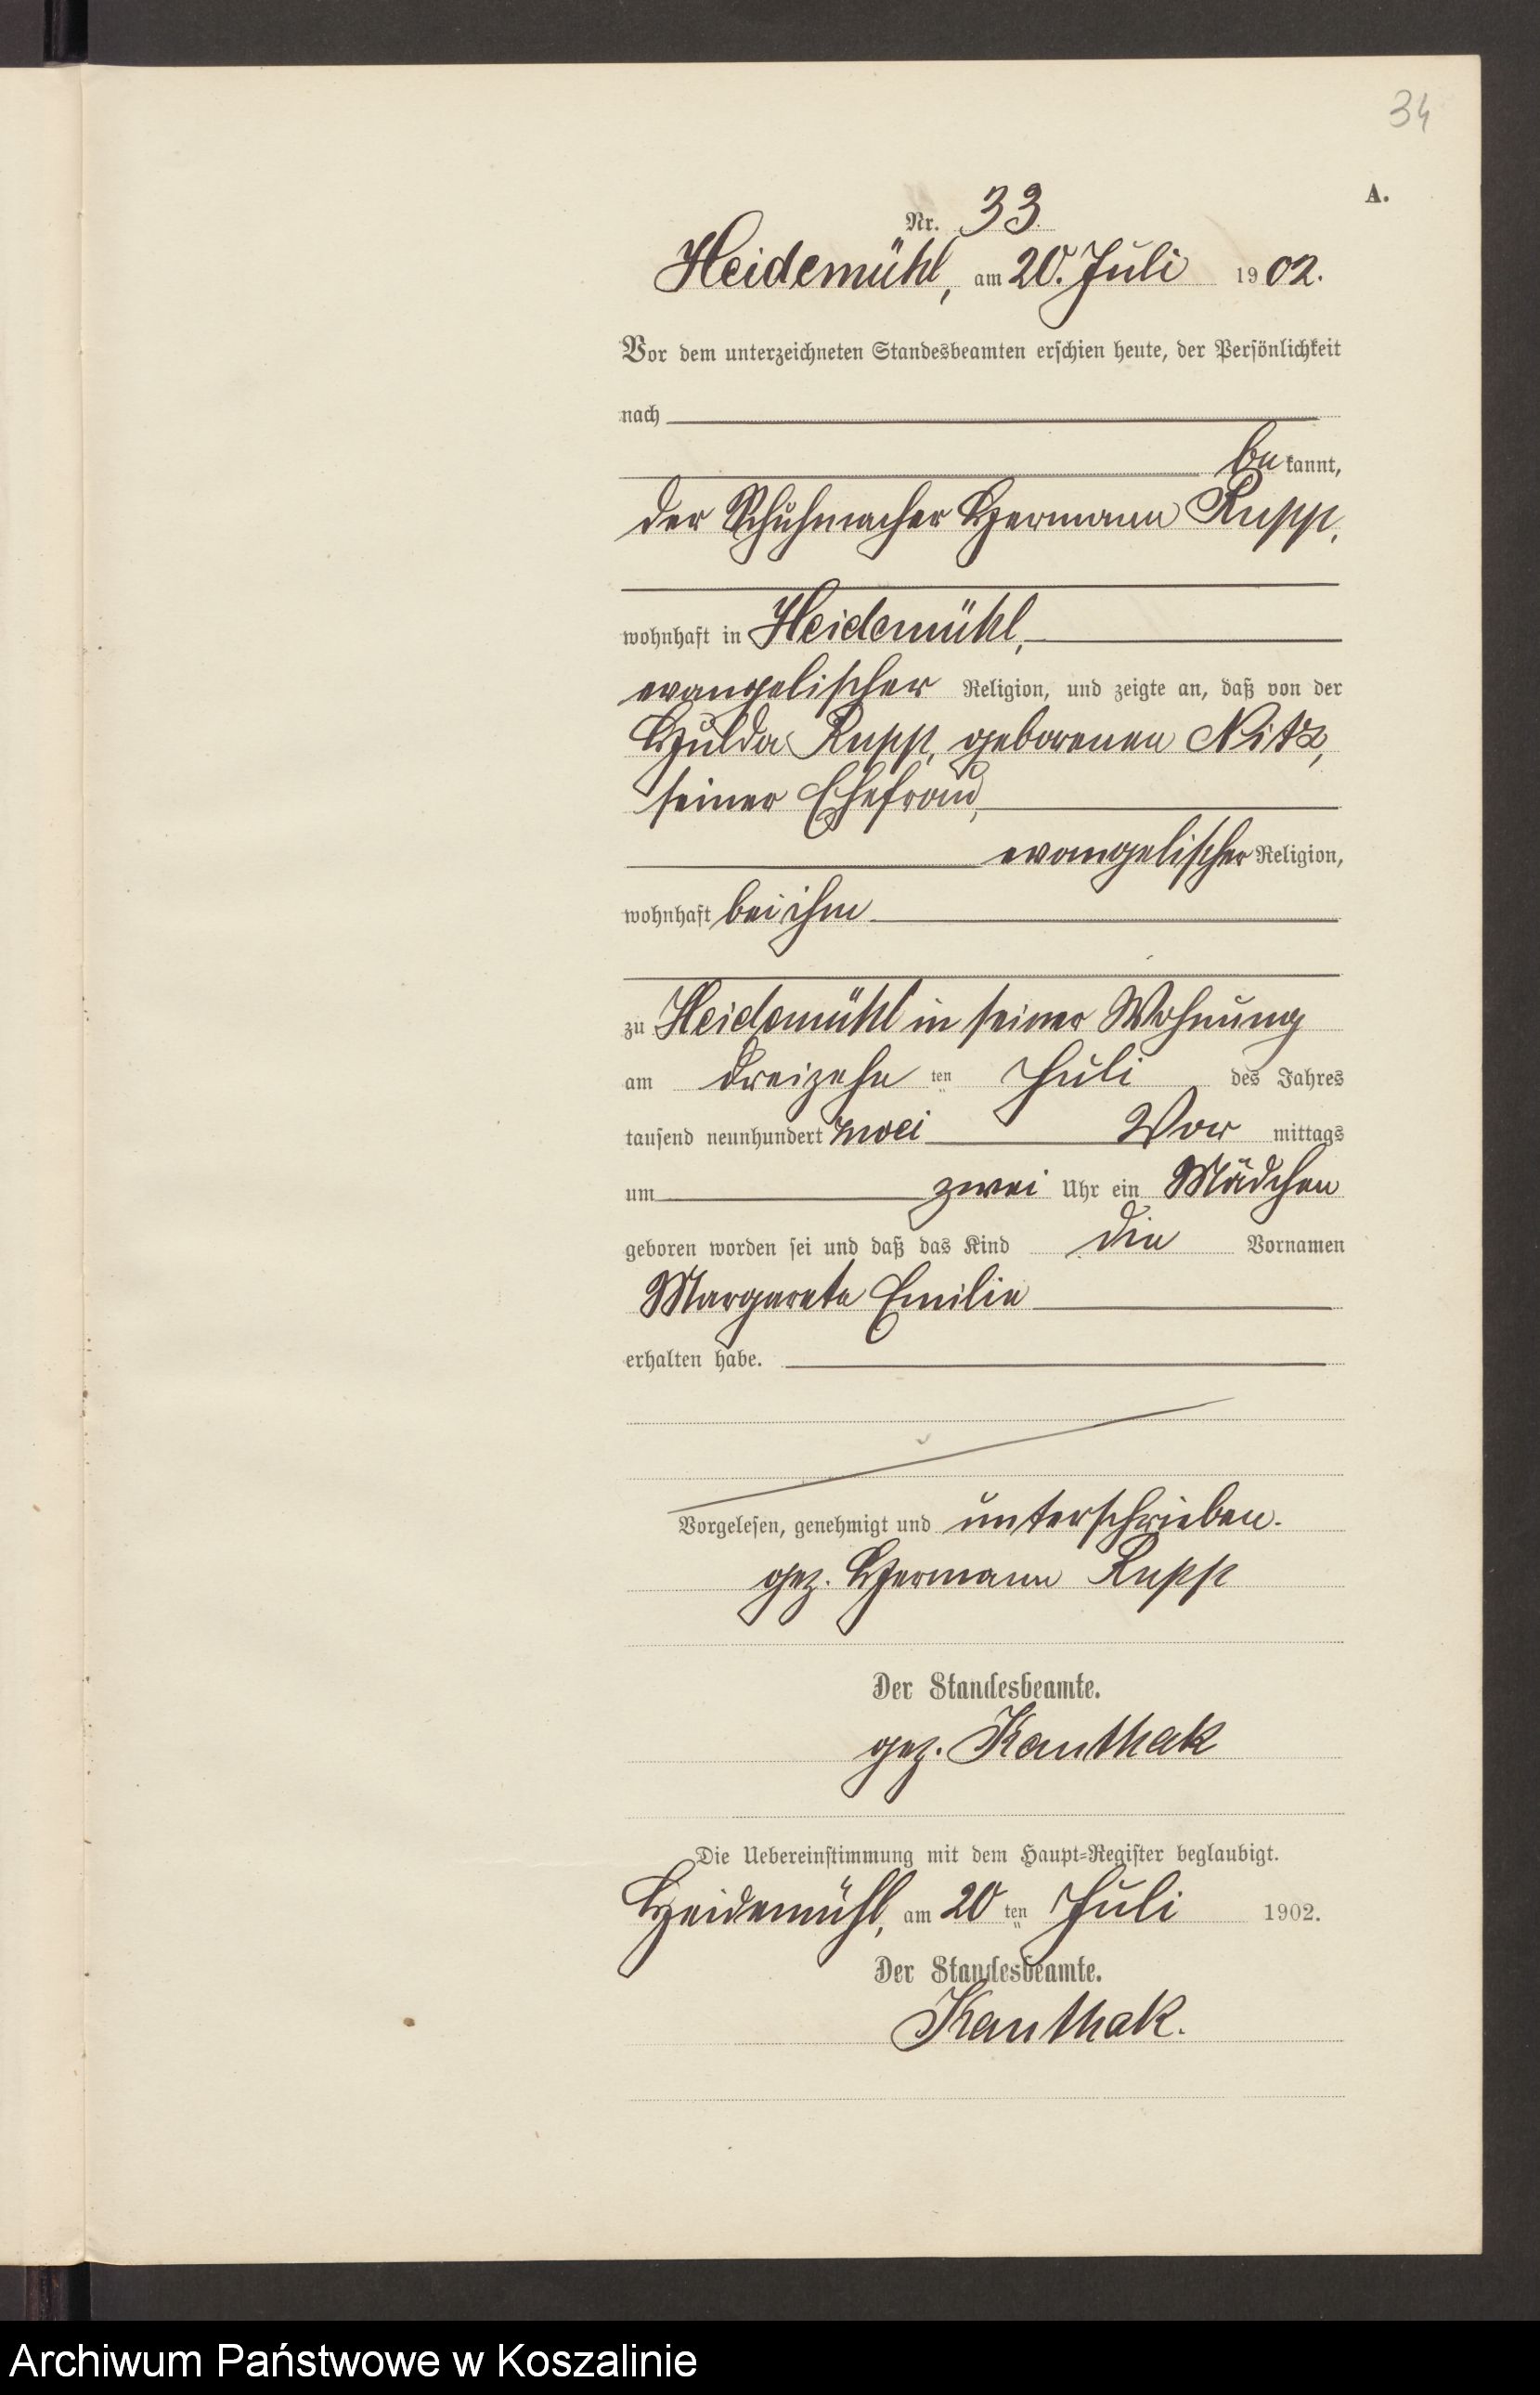 34
A.
Nr. 33.
Heidemühl, am 20. Juli 1902.
Vor dem unterzeichneten Standesbeamten erschien heute, der Persönlichkeit
nach
be kannt,
der Schuhmacher Hermann Rupp,
wohnhaft in Heidemühl,
evangelischer Religion, und zeigte an, daß von der
Hulda Rupp, geborenen Nitz,
seiner Ehefrau,
evangelischer Religion,
wohnhaft bei ihm
zu Heidemühl in seiner Wohnung
am dreizehn ten Juli des Jahres
tausend neunhundert zwei Vor mittags
um zwei Uhr ein Mädchen
geboren worden sei und daß das Kind die Vornamen
Margarete Emilie
erhalten habe.
Vorgelesen, genehmigt und unterschrieben.
gez. Hermann Rupp
Der Standesbeamte.
gez. Kanthak
Die Uebereinstimmung mit dem Haupt-Register beglaubigt.
Heidemühl, am 20 ten Juli 1902.
Der Standesbeamte.
Kanthak.
Archiwum Państwowe w Koszalinie